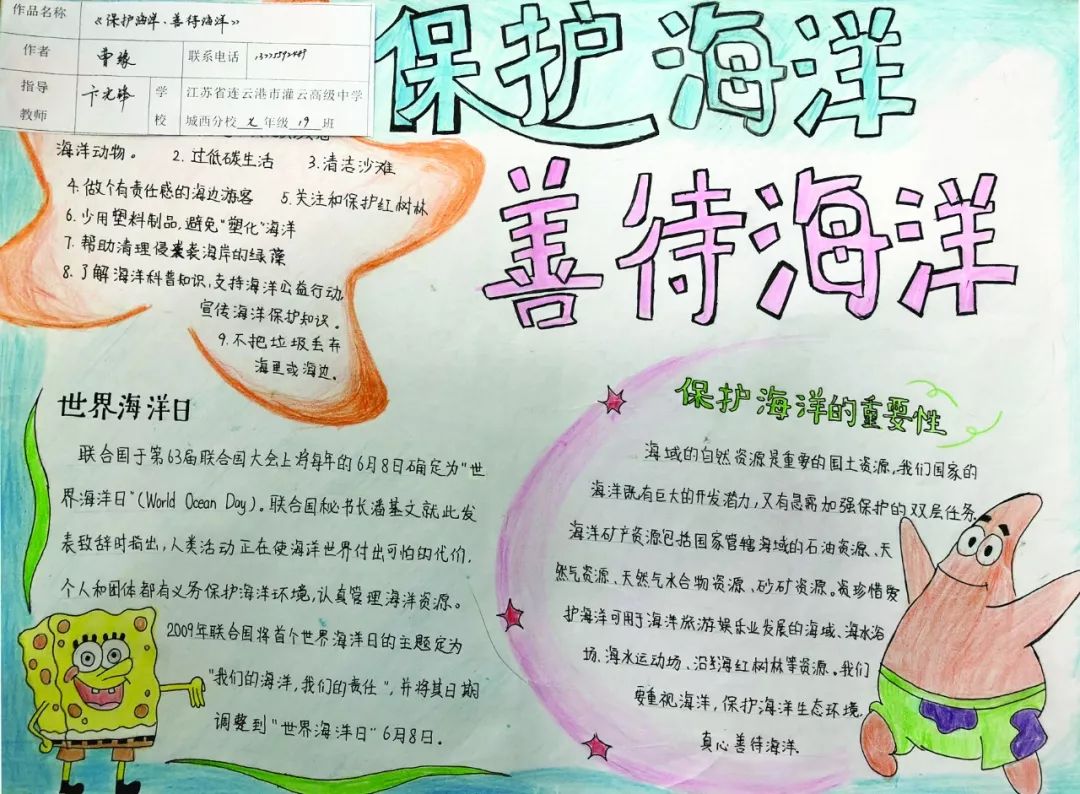 作品名称
《保护海洋、善待海洋》
作者
联系电话
指导教师
学校
江苏省连云港市灌云高级中学
城西分校 七 年级 19 班
保护海洋
善待海洋
海洋动物。 2. 过低碳生活 3.清洁沙难
4.做个有责任感的海边游客 5.关注和保护红树林
6. 少用塑料制品,避免"塑化"海洋
7. 帮助清理侵袭海岸的绿藻
8. 了解海洋科普知识,支持海洋公益行动,
宣传海洋保护知识。
9.不把垃圾丢弃
海里或海边。
世界海洋日
联合国于第63届联合国大会上将每年的6月8日确定为"世
界海洋日"(World Ocean Day)。联合国秘书长潘基文就此发
表致辞时指出,人类活动正在使海洋世界付出可怕的代价,
个人和团体都有义务保护海洋环境,认真管理海洋资源。
2009年联合国将首个世界海洋日的主题定为
"我们的海洋,我们的责任",并将其日期
调整到"世界海洋日"6月8日。
保护海洋的重要性
海域的自然资源是重要的国土资源,我们国家的
海洋既有巨大的开发潜力,又有急需加强保护的双层任务.
海洋矿产资源包括国家管辖海域的石油资源、天
然气资源、天然气水合物资源、砂矿资源。珍惜爱
护海洋可用于海洋旅游娱乐业发展的海域、海水浴
场、海水运动场、沿海红树林等资源。我们
要重视海洋,保护海洋生态环境.
真心善待海洋.